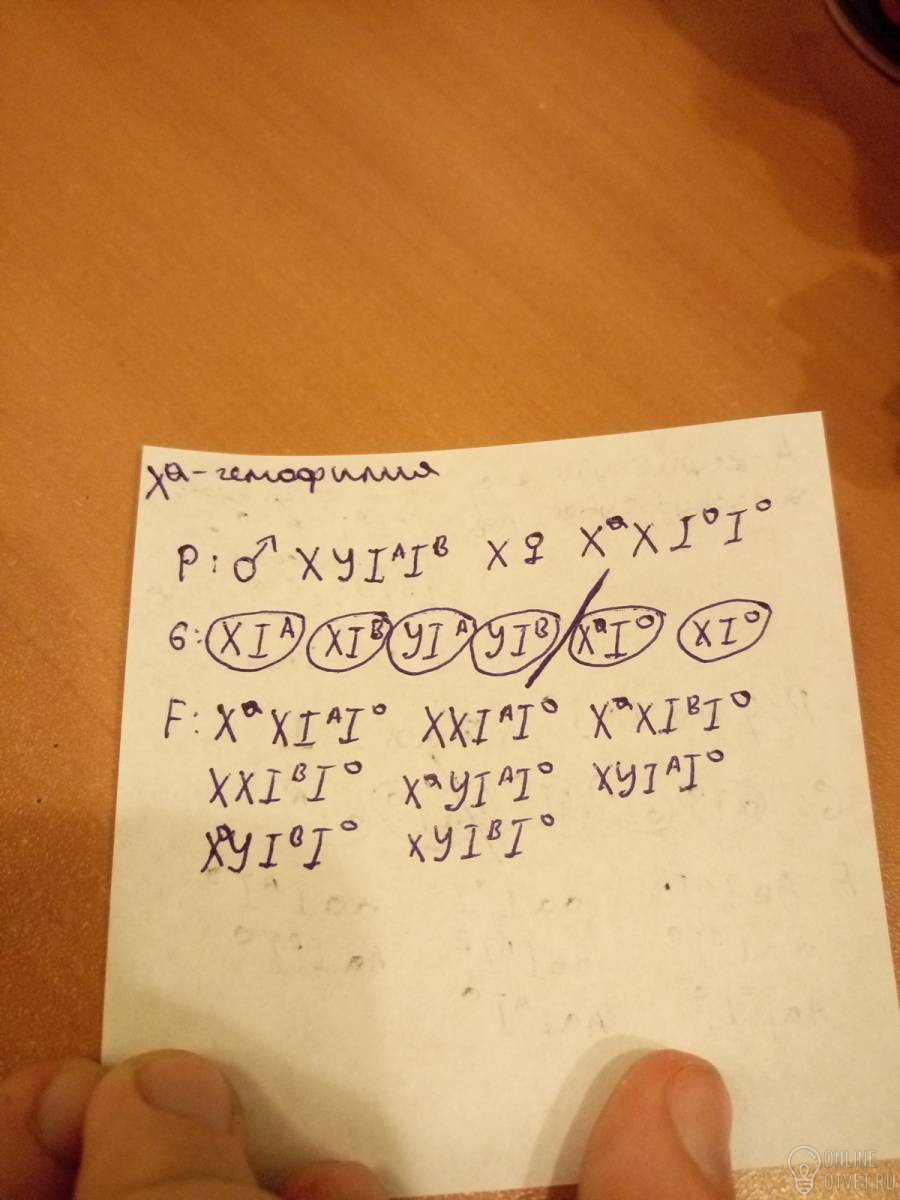 Xᵃ-гемофилия
P: ♂ XYIᴬIᴮ X ♀ XᵃXI⁰I⁰
G: XIᴬ XIᴮ YIᴬ YIᴮ / XᵃI⁰ XI⁰
F: XᵃXIᴬI⁰ XXIᴬI⁰ XᵃXIᴮI⁰
XXIᴮI⁰ XᵃYIᴬI⁰ XYIᴬI⁰
XᵃYIᴮI⁰ XYIᴮI⁰
ONLINE
OTVET.RU